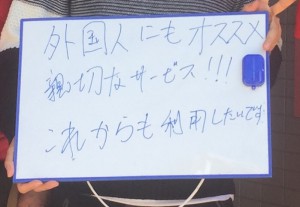 外国人にもオススメ
親切なサービス!!!
これからも利用したいです